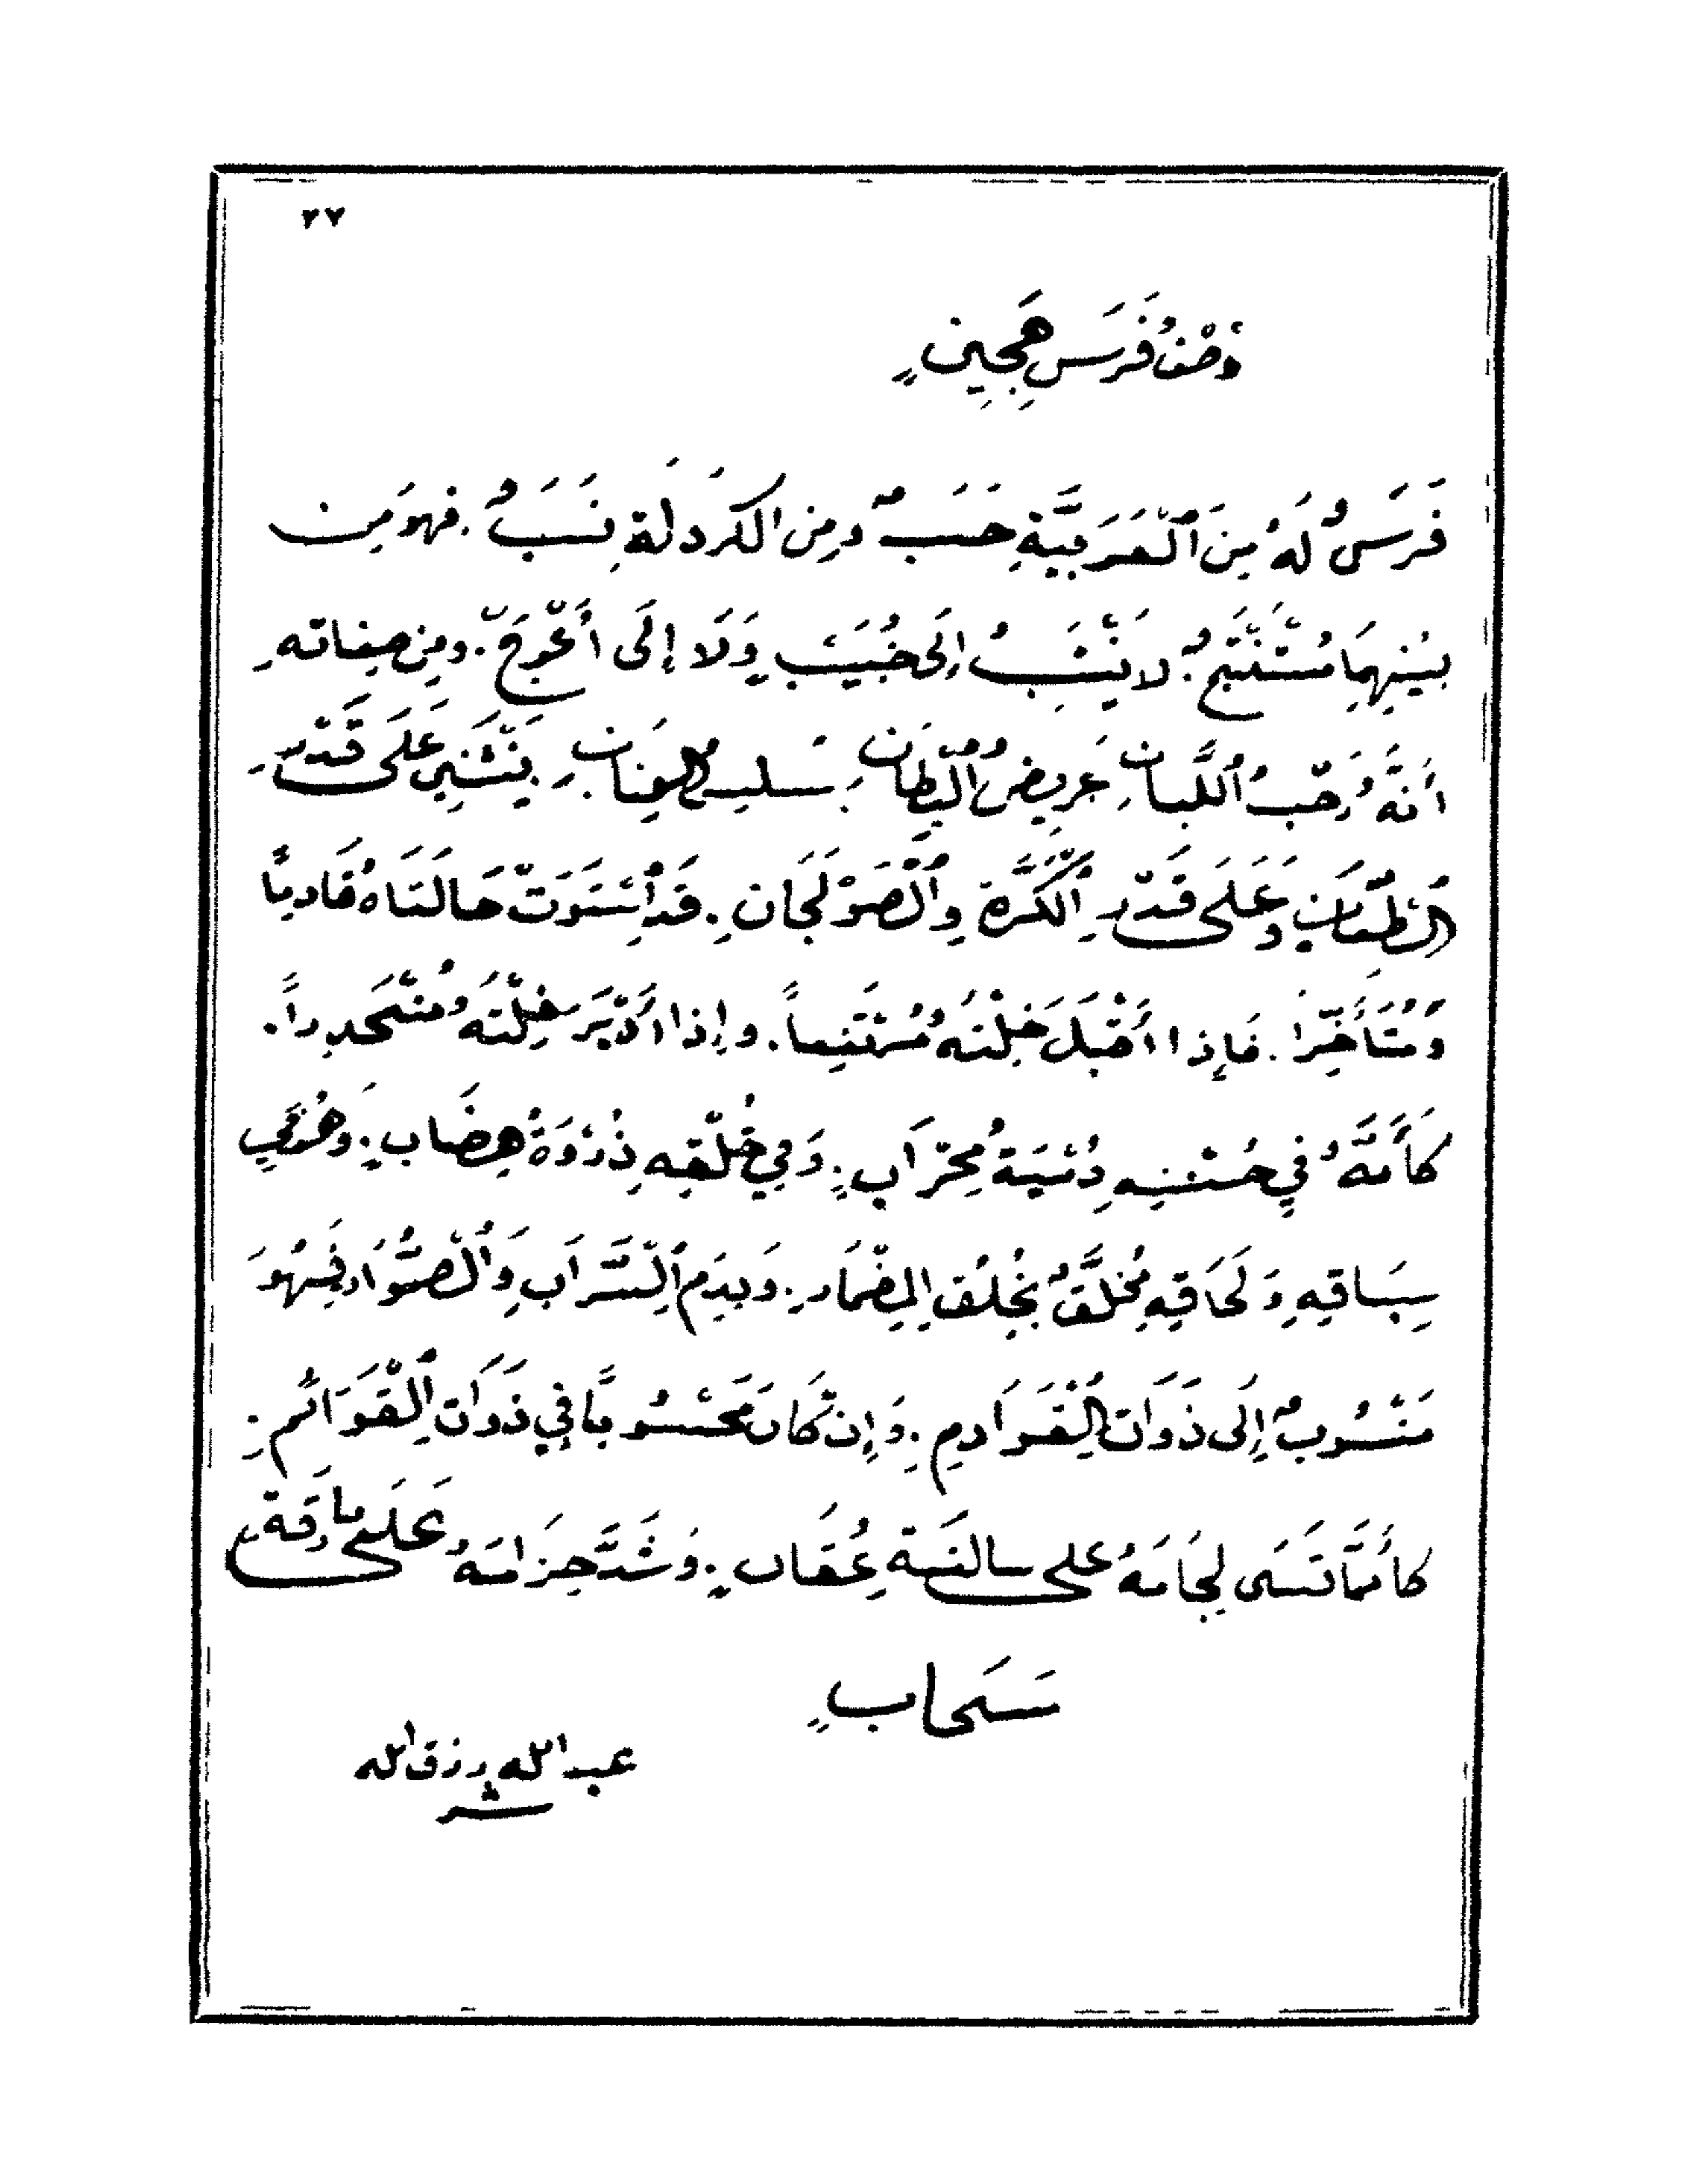 ٢٧
وَصْفُ فَرَسٍ هَجِينٍ
فَرَسٌ لَهُ مِنَ ٱلْعَرَبِيَّةِ حَسَبٌ ومِن الكَردلَةِ نَسَبٌ. فهو مَن
بينهما مُسْتَنْتَجٌ. لا يُنْسَبُ إلَى خُبَيْبٍ وَلَا إلَى أَعْوَجَ. ومِن صِفاتهِ
أَنَّهُ رَحْبُ ٱللَّبانِ عَرِيضُ ٱلْبِطَانِ سَلِسُ العِنَانِ. يَنْثَنِي عَلَى قَدْرِ
الطِّعَانِ وَعَلَى قَدْرِ ٱلْكُرَةِ وٱلْصَوْلَجَانِ. قَد ٱسْتَوَتْ حَالَتَاهُ قَادِمًا
وَمُتَأَخِّرًا. فَإذا أَقْبَلَ خِلْتهُ مُرْتَفِعاً. وإذا أَدْبَرَ خِلْتهُ مُنْحَدِراً.
كأَنَّهُ في حُسْنِهِ دُمْيَةُ مِحْرَابٍ. وَفي خَلْقِهِ ذُرْوَةُ هِضَابٍ. وَهُوَ فِي
سِبَاقِهِ وَلَحَاقِهِ مُخَلَّقٌ بِخَلُقِ المِضْمَارِ. وَبِدَمِ ٱلْسَّرَابِ وَٱلْصُّوَارِ فَهُوَ
مَنْسُوبٌ إِلَى ذَوَاتِ ٱلْقَوَادِمِ. وَإِنْ كَانَ مَحْسُوبًا في ذَوَاتِ ٱلْقَوَائمِ.
كأَنَّمَا تَسَى لِجَامَهُ على سالفَةِ عُقَابٍ. وَشَدَّ حِزَامَهُ عَلَى بارقَةِ
سَحَابٍ
عبد الله رزق الله